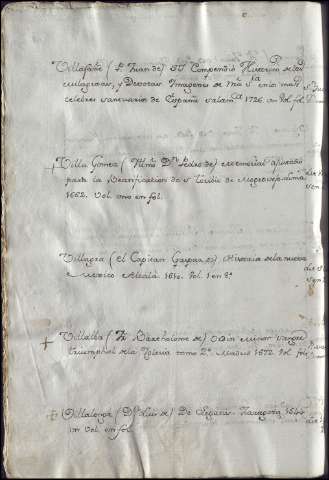 Villafañe (P. Juan de) su Compendio Historico de
milagrosas, y Devotas Imagenes de Mª Sª en los mas
celebres santuarios de España Salamca 1726. un Vol. fol.
+ Villa Gomez (Illmo Dn Pedro de) memorial ajustado
para la Beatificacion de Sto Toribio de Mogrovejo. Lima
1662. Vol. uno en fol.
Villagra (El Capitan Gaspar de) Historia de la nueva
Mexico Alcalá 1610. Vol. 1 en 8º
+ Villalba (Fr. Bartholome de)
triumphal de la Iglesia tomo 2º. Madrid 1672. Vol. fol.
+ Villalonga (Dn Luis de) De Legatis. Zaragoza 1644
un Vol. en fol.